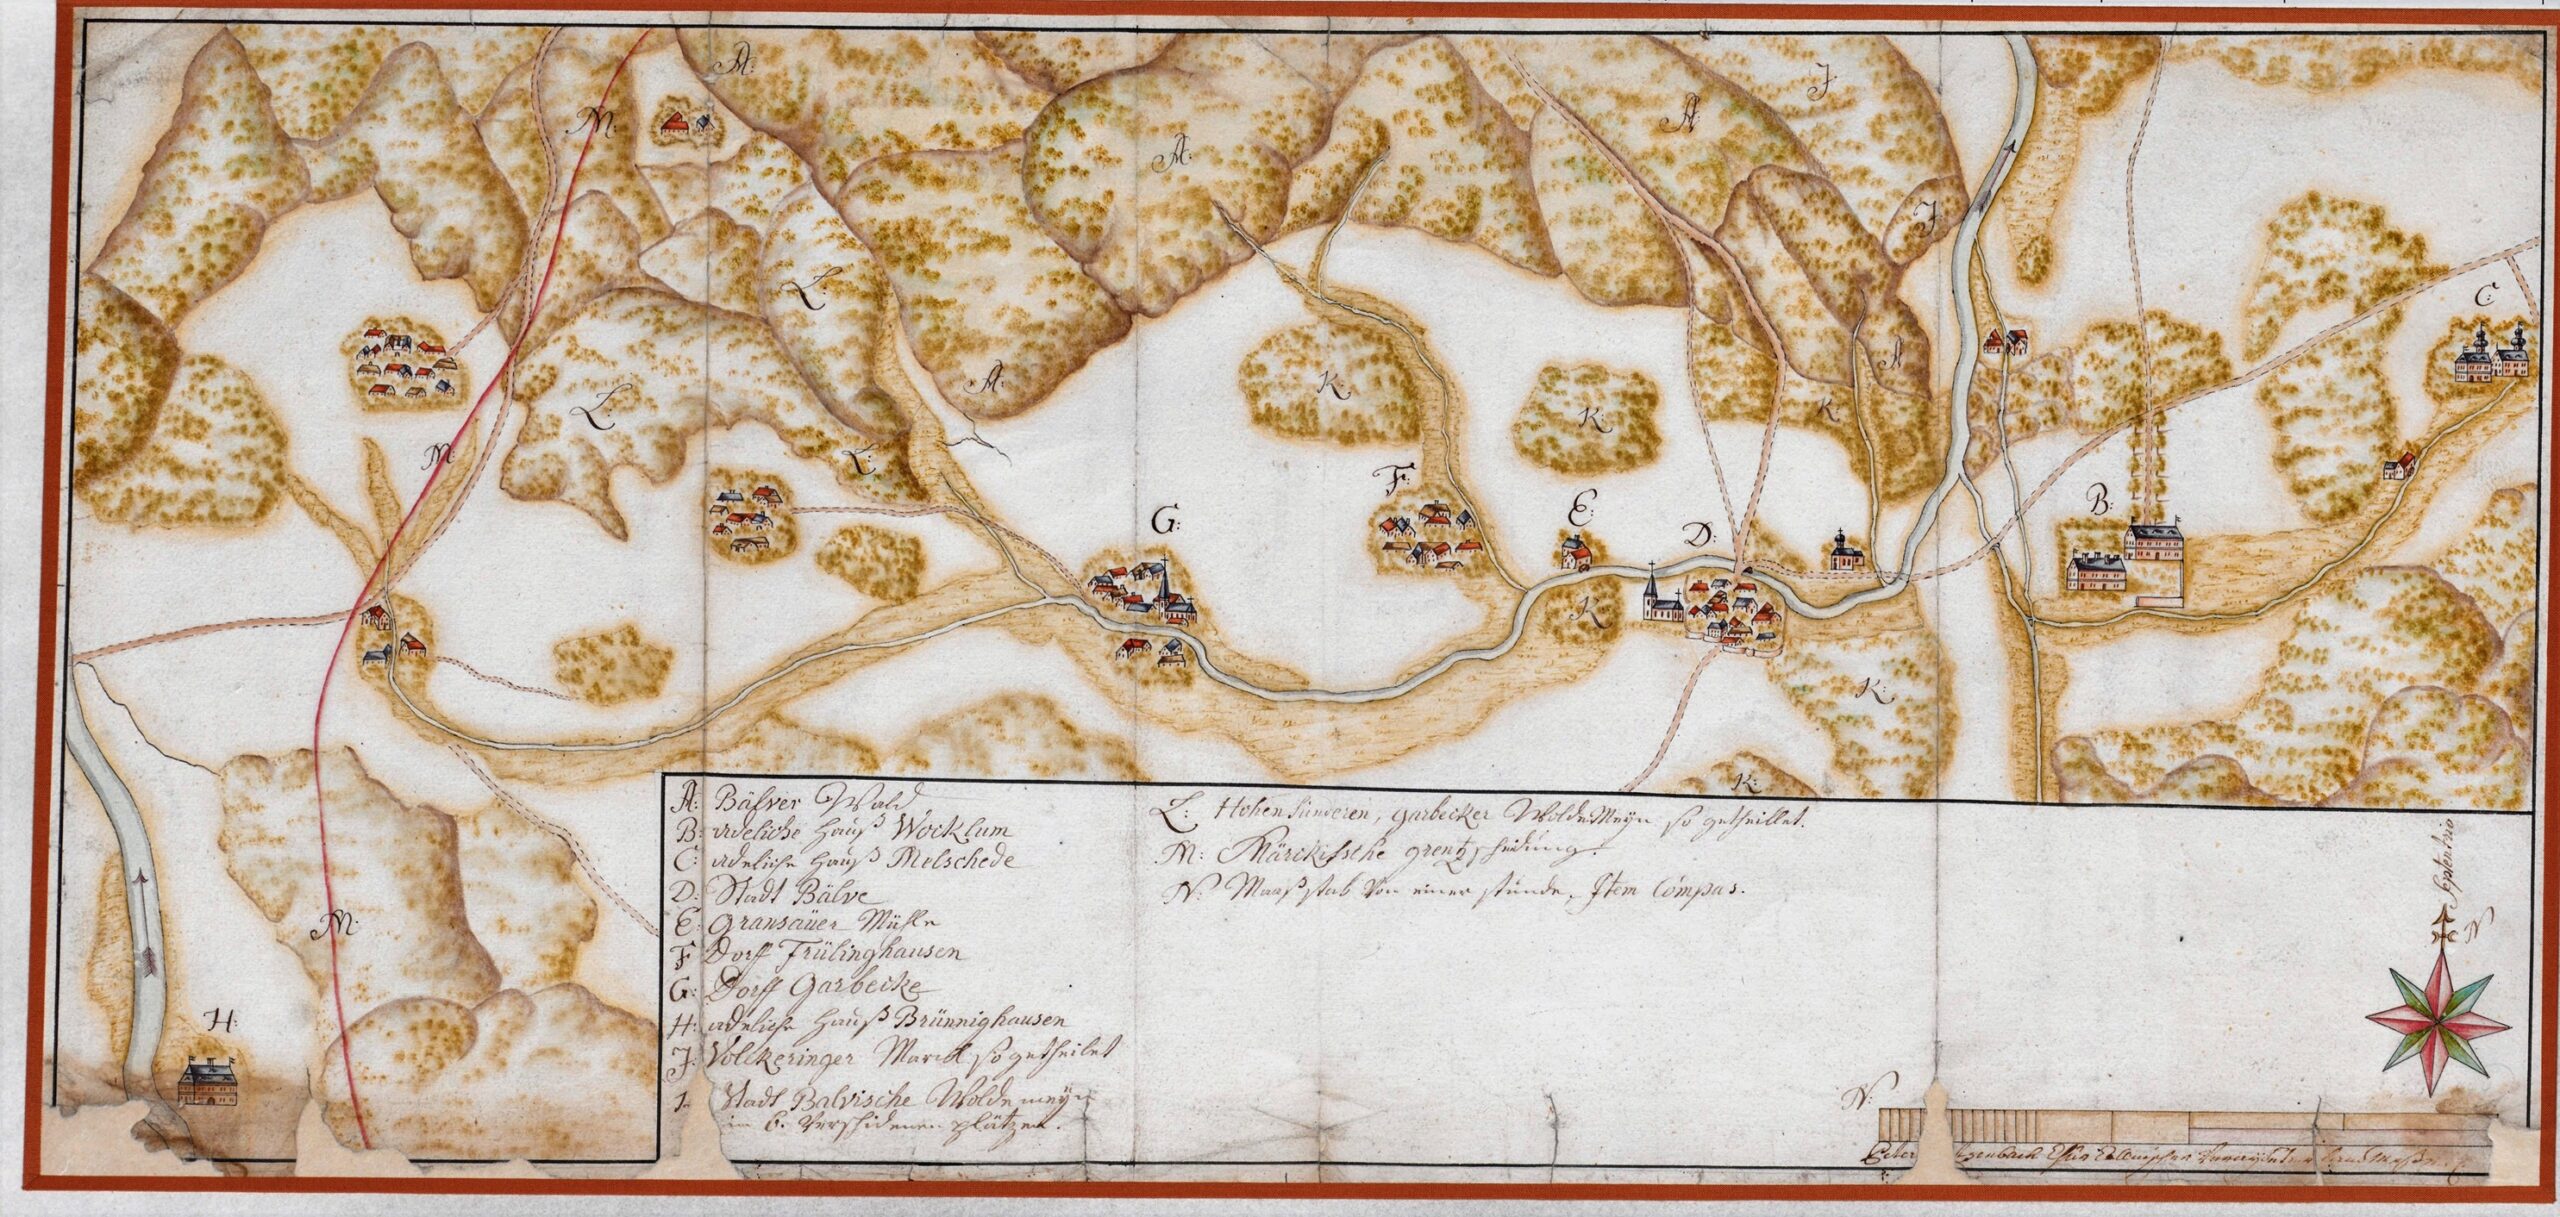 A:
M:
A:
A:
J:
J:
L:
A:
A:
C:
K:
K:
K:
L:
M:
L:
F:
E:
B:
G:
D:
K:
K:
K:
M:
H:
A: Bälver Wald
B: adeliche Hauß Wocklum
C: adeliche Hauß Melschede
D: Stadt Bälve
E: Gransauer Mühle
F Dorff Frülinghausen
G: Dorff Garbecke
H: adeliche Hauß Brünnighausen
J: Volckeringer Marck so getheilet
Stadt Balvische Woldemeyn
in 6. verschidenen plätzen.
L: Hohen Sünderen, Garbecker WoldeMeyn so getheillet.
M: Märckissche grentzscheidung.
N: Maaßstab von einer stunde, Item Compas.
Septentrio
N
N: